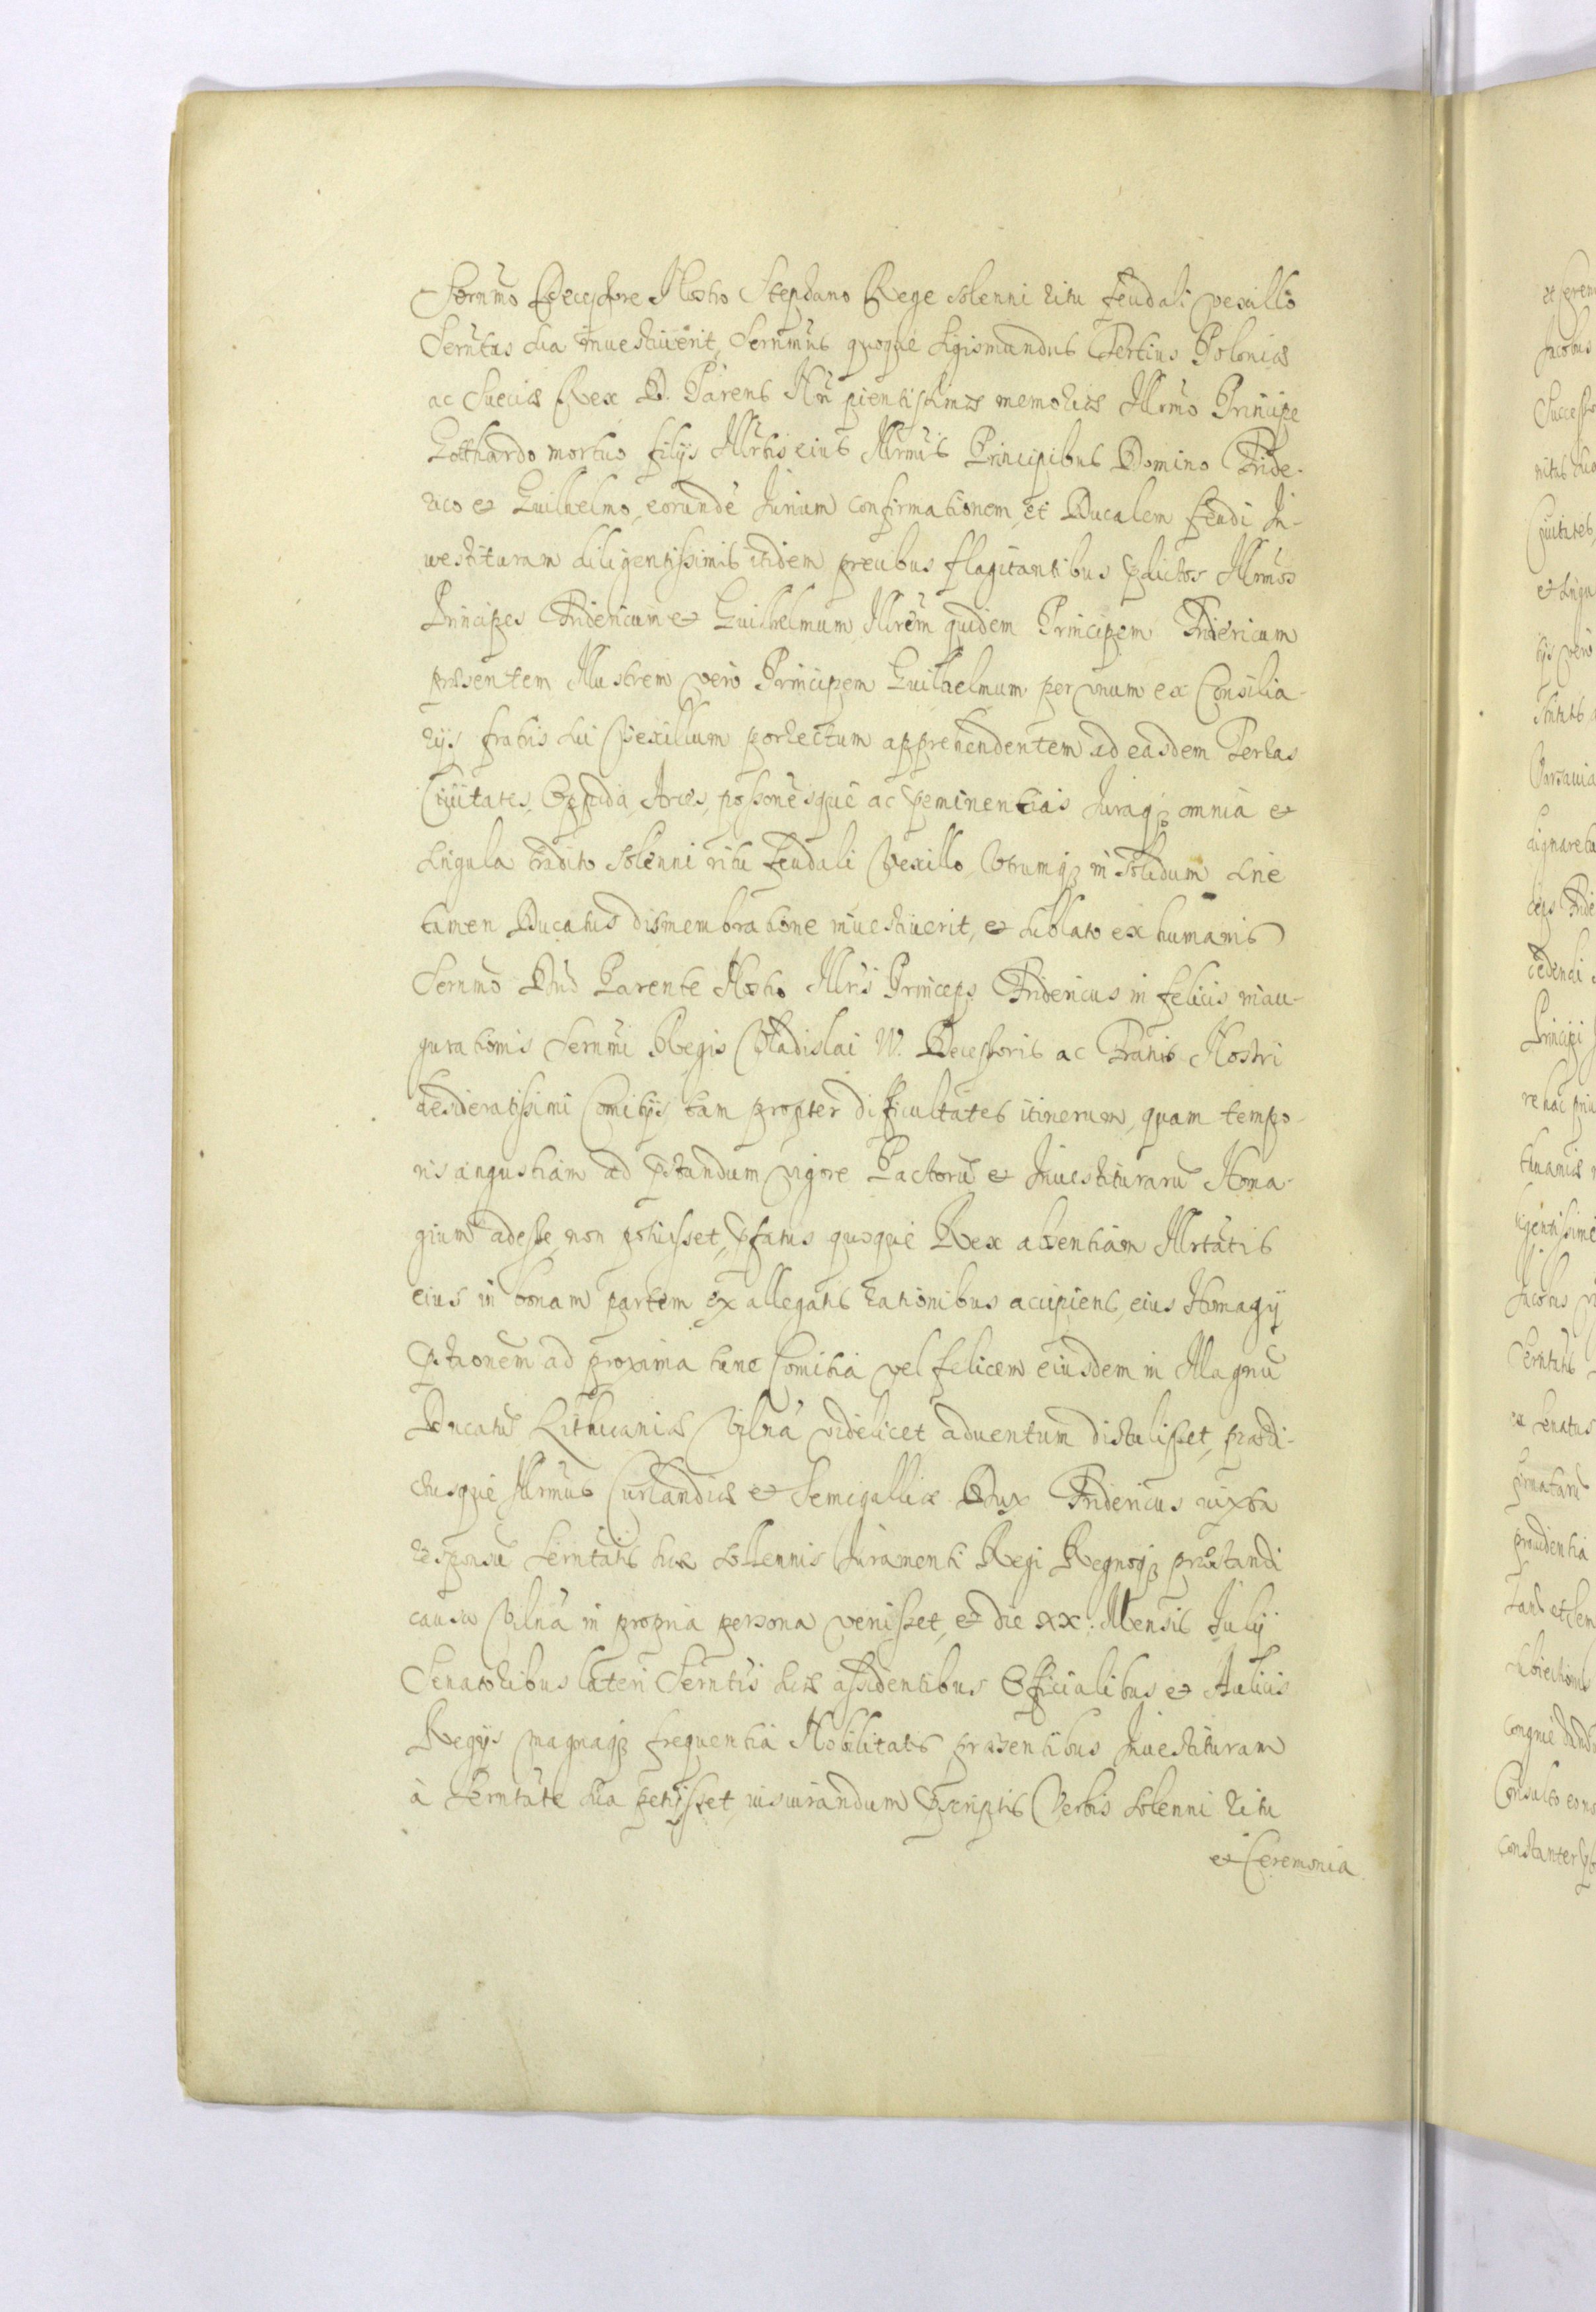 Sernmo Decessore Nostro Stephano Rege solenni ritu feudali vexillo
Serntas sua inuestiuerit, Sernmus quoque Sigismundus Tertius Poloniæ
ac Sueciæ Rex D. Parens Nr̃ pientissimæ memoriæ Illrmo Principe
Gotthardo mortuo filijs Illrtis eius Illrmis Principibus Domino Fride-
rico et Guilhelmo, eorundẽ Jurium confirmationem et Ducalem feudi In-
uestituram diligentissimis itidem precibus flagitantibus pdictos Illrmos
Principes Fridericum et Guilhelmum, Illrem quidem Principem Fridericum
præsentem Illustrem vero Principem Guilhelmum per vnum ex Consilia-
rijs fratris sui Vexillum porrectum apprehendentem ad easdem Terras
Ciuitates, Oppida, Arces, possonesque ac peminentias Juraqȝ omnia et
singula tradito solenni ritu feudali Vexillo, Vtrumqȝ in solidum sine
tamen Ducatus dismembratione inuestiuerit, et sublato ex humanis
Sernmo Dno Parente Nostro Illris Princeps Fridericus in felicis inau-
gurationis Sernmi Regis Vladislai IV. Decessoris ac Fratris Nostri
desideratissimi Comitijs tam propter difficultates itinerum, quam tempo-
ris angustiam ad pstandum vigore Pactorũ et Inuestiturarũ Homa-
gium adesse non potuisset, pfatus quoque Rex absentiam Illrtatis
eius in bonam partem ex allegatis rationibus accipiens, eius Homagij
pstaonem ad proxima tunc Comitia vel felicem eiusdem in Magnũ
Ducatũ Lithuaniæ Vilnã videlicet aduentum distulisset, prædi-
ctusque Illrmus Curlandiæ et Semigalliæ Dux Fridericus iuxta
responsũ Serntatis suæ sollennis Juramenti Regi Regnoqȝ præstandi
causa Vilnã in propria persona venisset, et die XX. Mensis Julij
Senatoribus lateri Serntis suæ assidentibus Officialibus et Aulicis
Regijs magnaqȝ frequentia Nobilitatis præsentibus Inuestituram
à Serntate sua petijsset, iusiurandum pscriptis Verbis solenni ritu
et Ceremonia